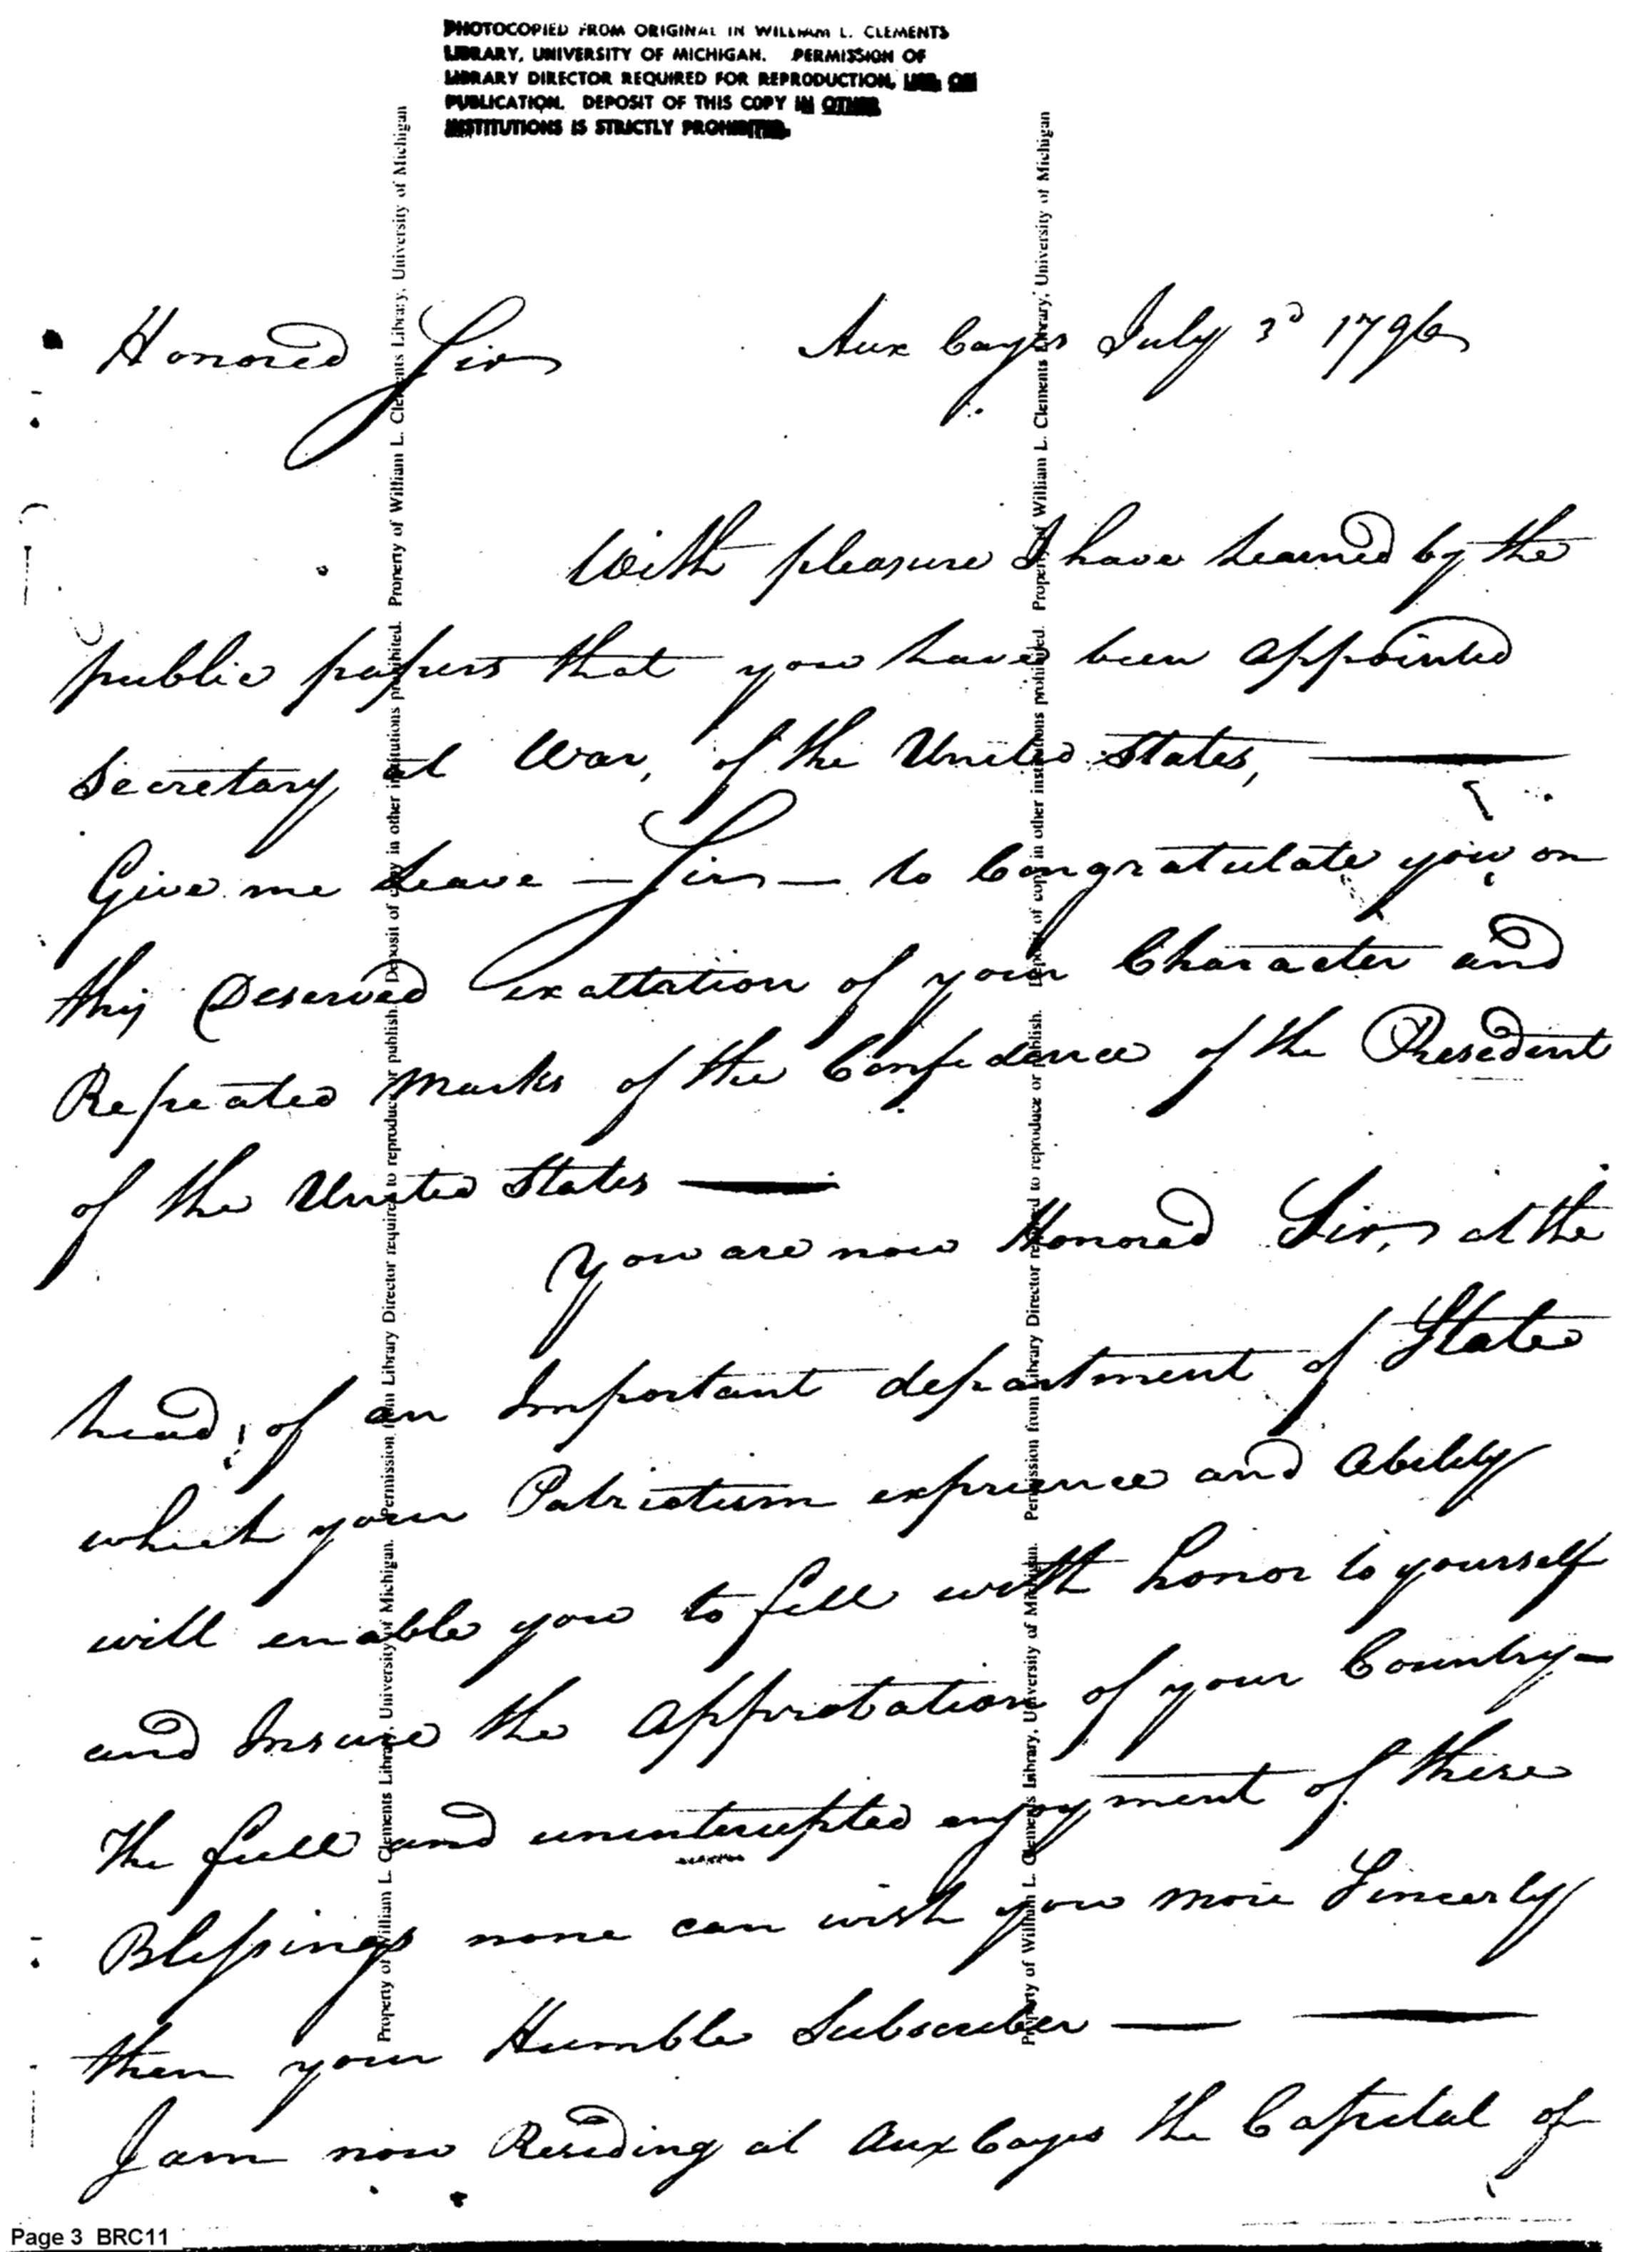 PHOTOCOPIED FROM ORIGINAL IN WILLIAM L. CLEMENTS
LIBRARY, UNIVERSITY OF MICHIGAN. PERMISSION OF
LIBRARY DIRECTOR REQUIRED FOR REPRODUCTION, USE OR
PUBLICATION. DEPOSIT OF THIS COPY IN OTHER
INSTITUTIONS IS STRICTLY PROHIBITED.
Honored Sir
Aux Cayes July 3d 1796
With pleasure I have learned by the
public papers that you have been appointed
Secretary at War, of the United States,
Give me Leave — Sir — to Congratulate you on
this Deserved exaltation of your Character and
Repeated marks of the Confedence of the Presedent
of the United States —
you are now Honored Sir, at the
head of an Important department of State
which your Patriotism exprience and Ability
will enable you to fill with honor to yourself
and Insure the Approbation of your Country —
The full and uninterrupted enjoyment of these
Blessings none can wish you more Sincerly
then your Humble Subscriber —
I am now Reseding at Aux Cayes the Capital of
Property of William L. Clements Library, University of Michigan. Permission from Library Director required to reproduce or publish. Deposit of copy in other institutions prohibited. Property of William L. Clements Library, University of Michigan
Property of William L. Clements Library, University of Michigan. Permission from Library Director required to reproduce or publish. Deposit of copy in other institutions prohibited. Property of William L. Clements Library, University of Michigan
Page 3 BRC11